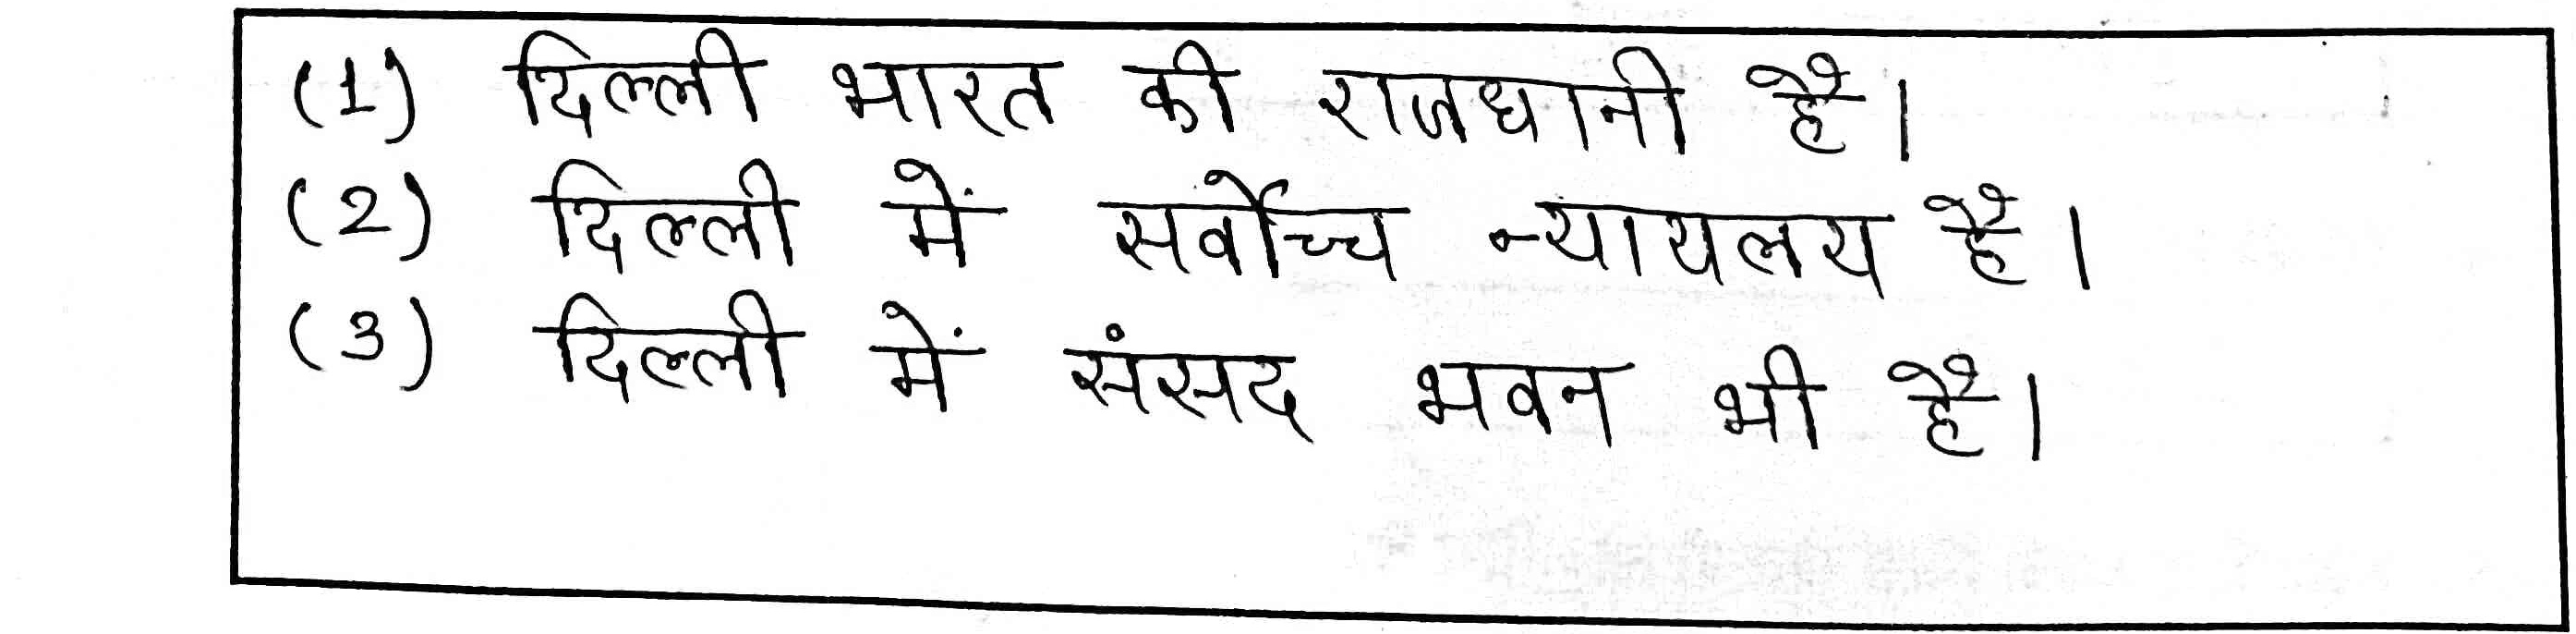 (1) दिल्ली भारत की राजधानी है।
(2) दिल्ली में सर्वोच्च न्यायलय है।
(3) दिल्ली में संसद भवन भी है।